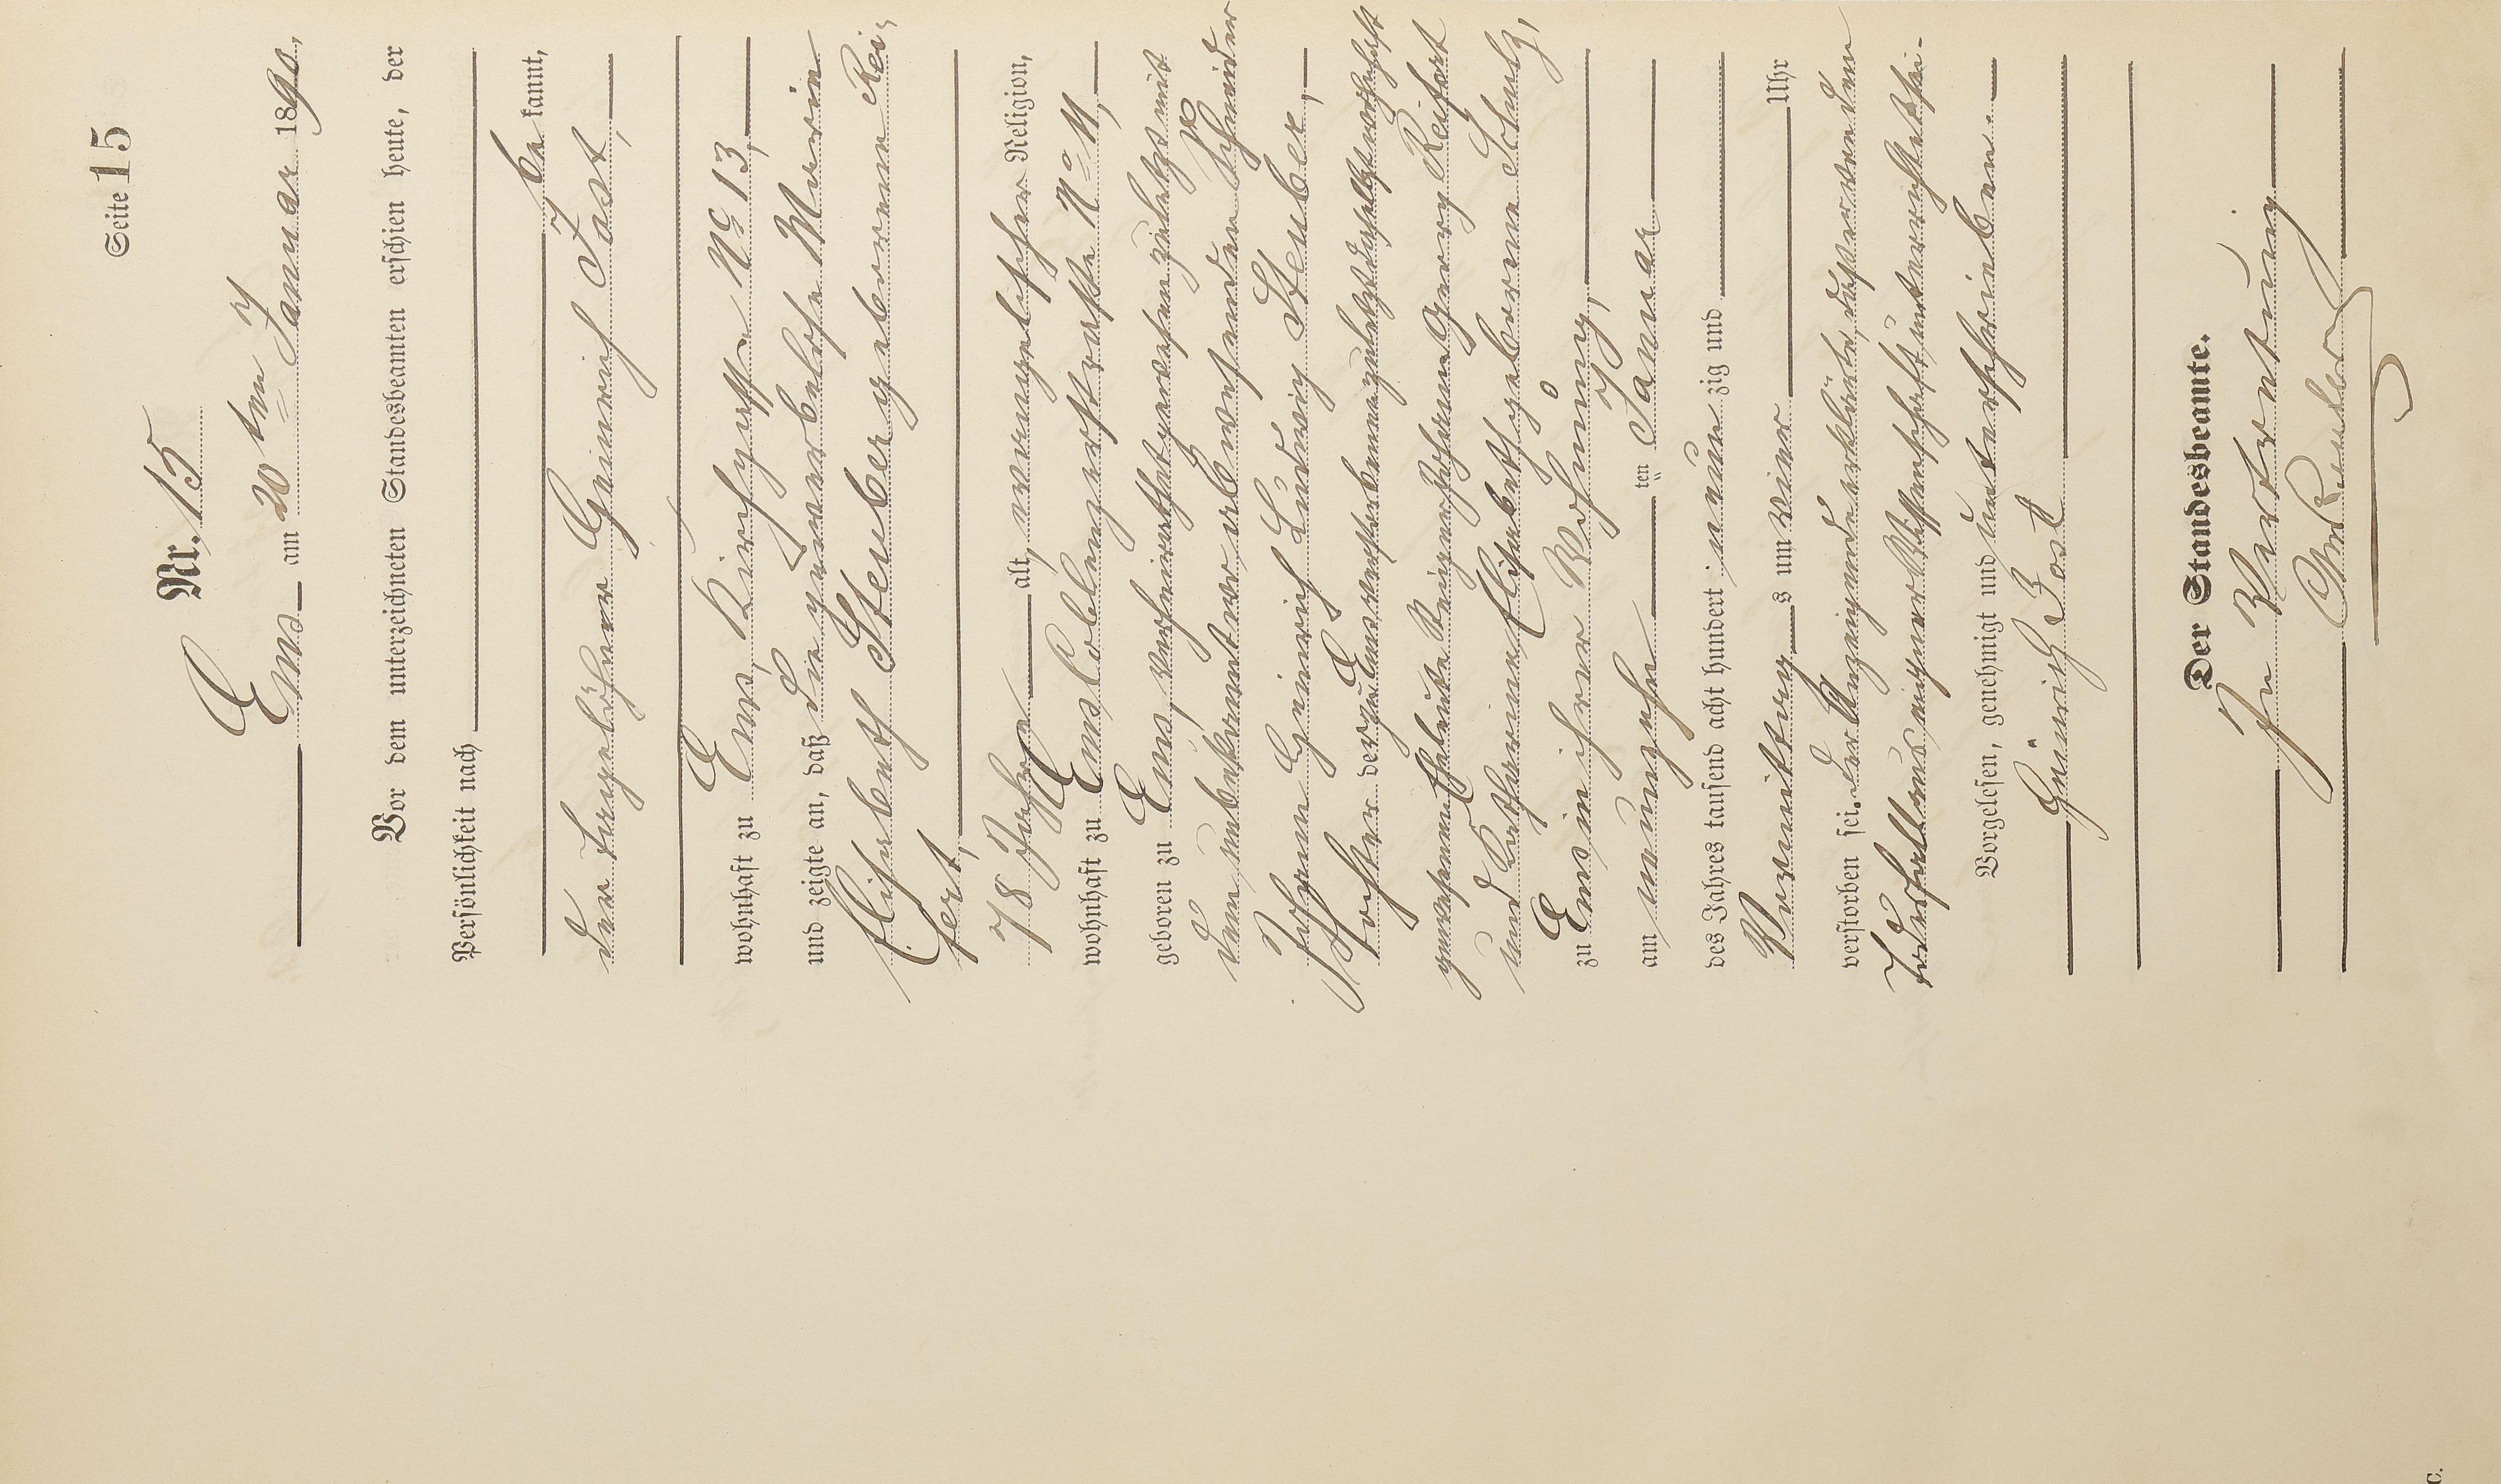 Seite 15
Nr. 15
Ems am 20 ten Januar 1890,
Vor dem unterzeichneten Standesbeamten erschien heute, der
Persönlichkeit nach
be kannt,
der Tagelöhner Heinrich Jost,
wohnhaft zu Ems, Kirchgasse No 13,
und zeigte an, daß die gewerbelose Maria
Elisabeth Steuber geborene Rei-
fert,
78 Jahre alt, evangelischer Religion,
wohnhaft zu Ems Coblenzerstraße No 11,
geboren zu Ems, verheirathet gewesen zuletzt mit
dem unbekannt wo abwesenden Schneider
Johann Heinrich Ludwig Steuber,
Tochter der zu Ems verstorbenen zuletzt daselbst wohnhaft
gewesenen Eheleute Johann Georg Reifert
und Katharina Elisabeth geborene Schulz,
zu Ems in ihrer Wohnung,
am neunzehn ten Januar
des Jahres tausend acht hundert neun zig und
Vormittags um vier Uhr
verstorben sei. der Anzeigende erklärte, daß er von dem
Todesfall aus eigner Wissenschaft unterrichtet sei.
Vorgelesen, genehmigt und unterschrieben.
Heinrich Jost
Der Standesbeamte.
In Vertretung
C.